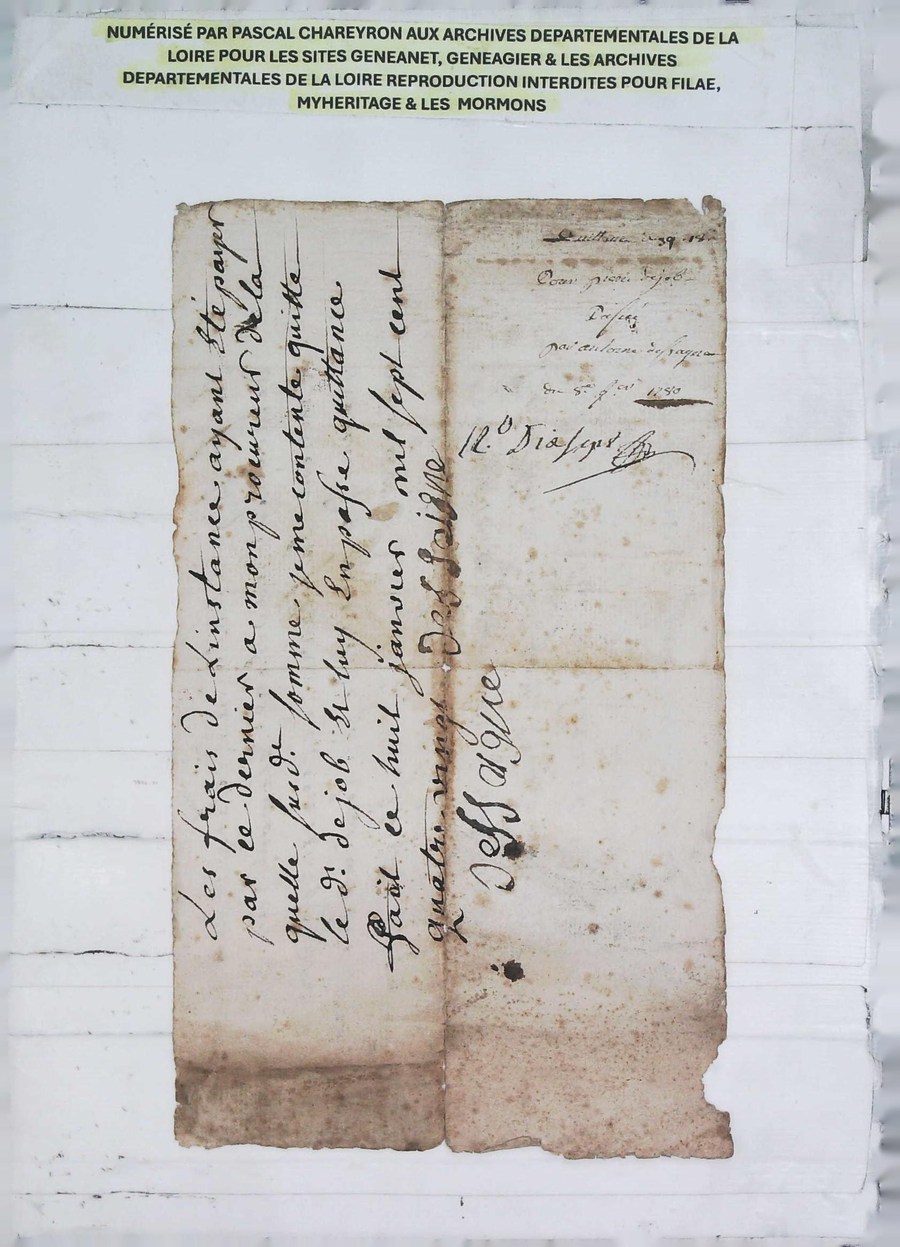 NUMÉRISÉ PAR PASCAL CHAREYRON AUX ARCHIVES DEPARTEMENTALES DE LA
LOIRE POUR LES SITES GENEANET, GENEAGIER & LES ARCHIVES
DEPARTEMENTALES DE LA LOIRE REPRODUCTION INTERDITES POUR FILAE,
MYHERITAGE & LES MORMONS
Les frais de Linstance ayant Eté payer
par ce dernier a mon procureur de la
quelle susde somme je me contente quitte
le dt dejob Et luy En passe quittance
fait ce huit janvier mil sept cent
quatre vingt Dessaigne
Dessaigne
Quittance 39
Pour pierre dejob
Passée
par antoine dessagne
du 8e 1780